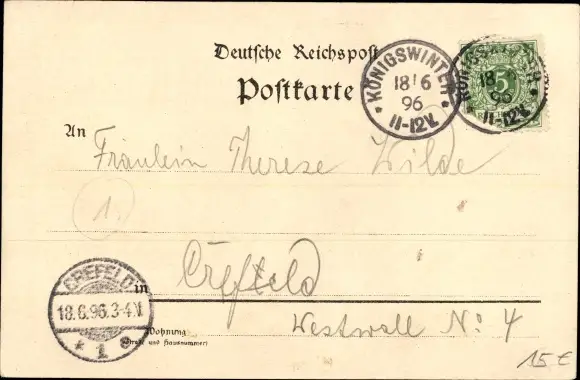 Deutsche Reichspost
Postkarte
KÖNIGSWINTER
18 6
96
11-12V.
KÖNIGSWINTER
18
96
11-12V.
5
An
Fräulein Therese Wilde
1.
in Crefeld
CREFELD
18.6.96.3-4N
* 1
Wohnung
(Straße und Hausnummer)
Westwall No: 4
15€